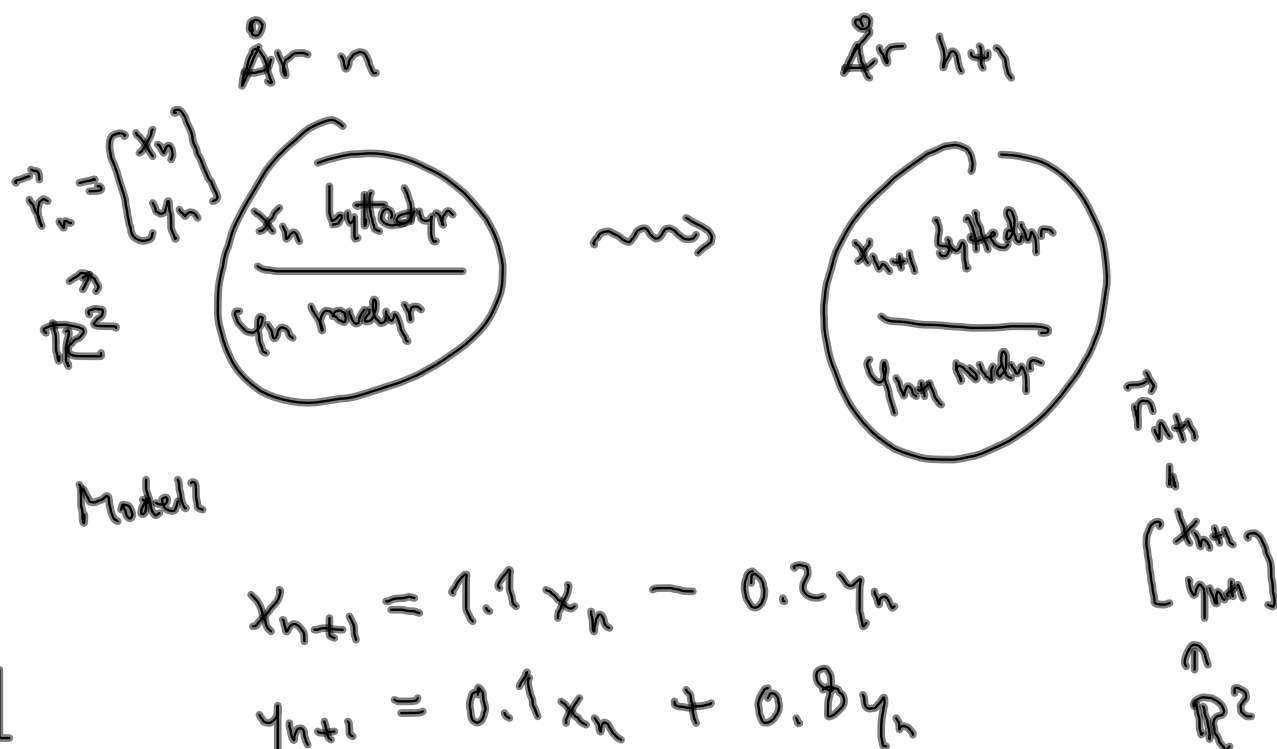 År n
År n+1
r⃗ₙ = [xₙ yₙ]
∈ ℝ²
xₙ byttedyr
yₙ rovdyr
xₙ₊₁ byttedyr
yₙ₊₁ rovdyr
r⃗ₙ₊₁
=
[xₙ₊₁ yₙ₊₁]
∈ ℝ²
Modell
xₙ₊₁ = 1.1 xₙ − 0.2 yₙ
yₙ₊₁ = 0.1 xₙ + 0.8 yₙ